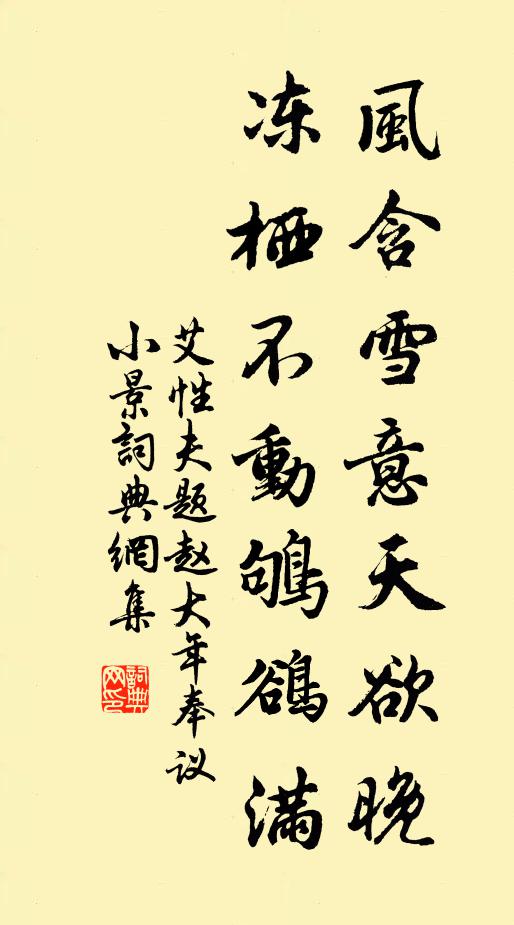 風含雪意天欲晚
冻栖不動鴝鵒滿
艾性夫题赵大年奉议
小景詞典網集
詞典
网印